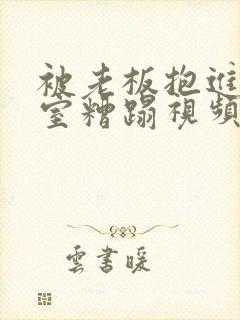 被老板抱進
室糟蹋視頻
雲書暖